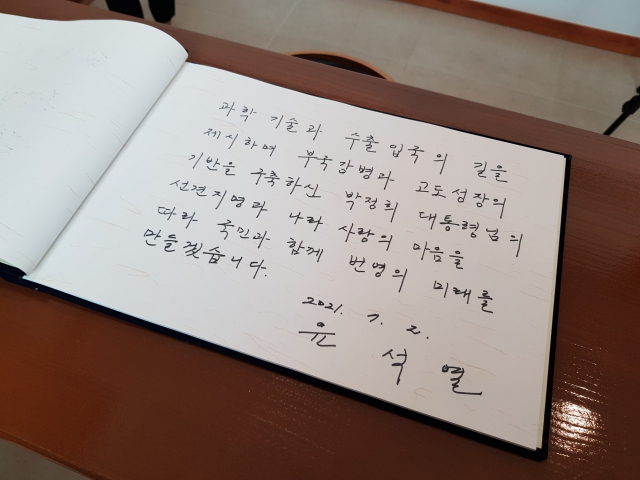 과학 기술과 수출 입국의 길을
제시하며 부국강병과 고도성장의
기반을 구축하신 박정희 대통령님의
선견지명과 나라 사랑의 마음을
따라 국민과 함께 번영의 미래를
만들겟습니다.
2021. 7. 2.
윤 석 열